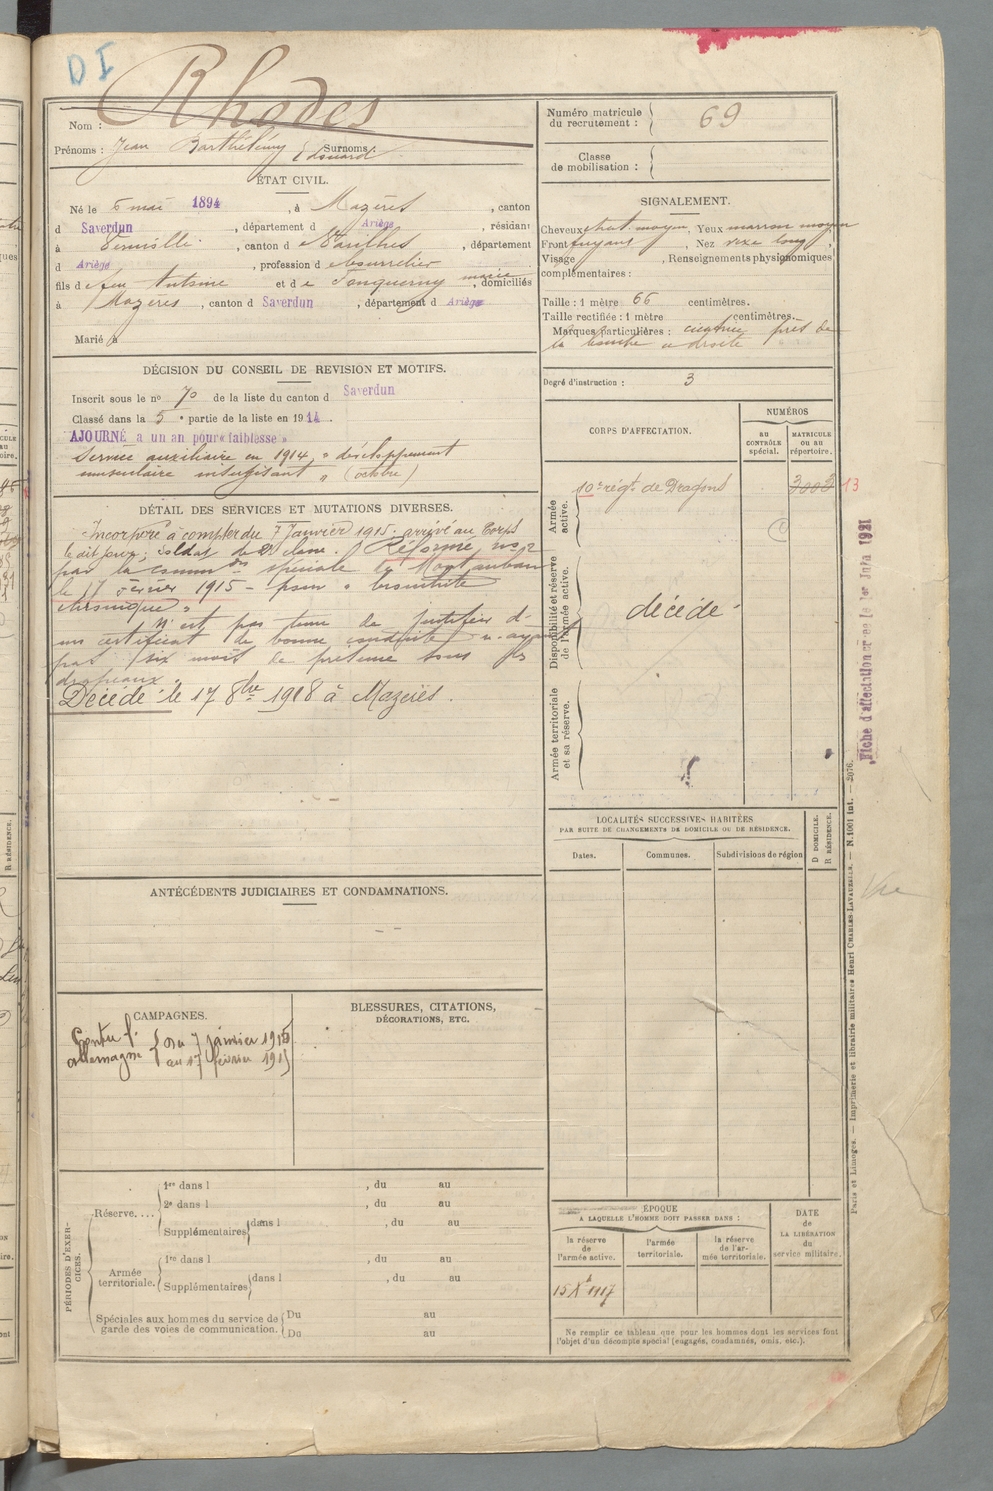 D I
Nom : Rhodes
Prénoms : Jean Barthélémy Edouard Surnoms :
ÉTAT CIVIL.
Né le 5 mai 1894, à Mazères, canton
d Saverdun, département d Ariège, résidant
à , canton d Varilhes, département
d Ariège, profession de bourrelier
fils de feu Antoine et de Tonquerny marie, domiciliés
à Mazères, canton d Saverdun, département d Ariège
Marié à
DÉCISION DU CONSEIL DE REVISION ET MOTIFS.
Inscrit sous le nº 70 de la liste du canton d Saverdun
Classé dans la 5e partie de la liste en 1914.
AJOURNÉ à un an pour « faiblesse »
Service auxiliaire en 1914, " développement
musculaire insuffisant " (octobre)
DÉTAIL DES SERVICES ET MUTATIONS DIVERSES.
Incorporé à compter du 7 Janvier 1915. arrivé au Corps
le dit jour; Soldat de 2e classe. Réformé nº 2
par la comm on spéciale de Montauban
le 17 février 1915 - pour " bronchite
chronique "
N'est pas tenu de justifier d'
un certificat de bonne conduite n'ayant
pas six mois de présence sous les
drapeaux.
Décédé le 17 8bre 1918 à Mazères.
ANTÉCÉDENTS JUDICIAIRES ET CONDAMNATIONS.
CAMPAGNES.
Contre l'
allemagne { du 7 janvier 1915
au 17 février 1915
BLESSURES, CITATIONS,
DÉCORATIONS, ETC.
PÉRIODES D'EXERCICES.
Réserve....
1re dans l , du au
2e dans l , du au
Supplémentaires dans l , du au
Armée territoriale.
1re dans l , du au
Supplémentaires dans l , du au
Spéciales aux hommes du service de
garde des voies de communication.
Du au
Du au
Numéro matricule
du recrutement : 69
Classe
de mobilisation :
SIGNALEMENT.
Cheveux chat. moyen, Yeux marron moyen
Front fuyant, Nez long
Visage , Renseignements physionomiques
complémentaires :
Taille : 1 mètre 66 centimètres.
Taille rectifiée : 1 mètre centimètres.
Marques particulières : cicatrice près de
la bouche à droite
Degré d'instruction : 3
CORPS D'AFFECTATION.
NUMÉROS
AU
CONTRÔLE
spécial.
MATRICULE
OU AU
répertoire.
Armée
active.
10e régt. de Dragons
3003 13
Disponibilité et réserve
de l'armée active.
décédé
Armée territoriale
et sa réserve.
LOCALITÉS SUCCESSIVES HABITÉES
PAR SUITE DE CHANGEMENTS DE DOMICILE OU DE RÉSIDENCE.
Dates.
Communes.
Subdivisions de région
D DOMICILE.
R RÉSIDENCE.
ÉPOQUE
A LAQUELLE L'HOMME DOIT PASSER DANS :
la réserve
de
l'armée active.
l'armée
territoriale.
la réserve
de l'ar-
mée territoriale.
DATE
de
LA LIBÉRATION
du
service militaire.
15 Xe 1917
Ne remplir ce tableau que pour les hommes dont les services font
l'objet d'un décompte spécial (engagés, condamnés, omis, etc.).
Fiche d'affectation créée le 1er Juin 1921
Paris et Limoges. — Imprimerie et librairie militaires Henri CHARLES-LAVAUZELLE. — N. 1001 int. — 2076.